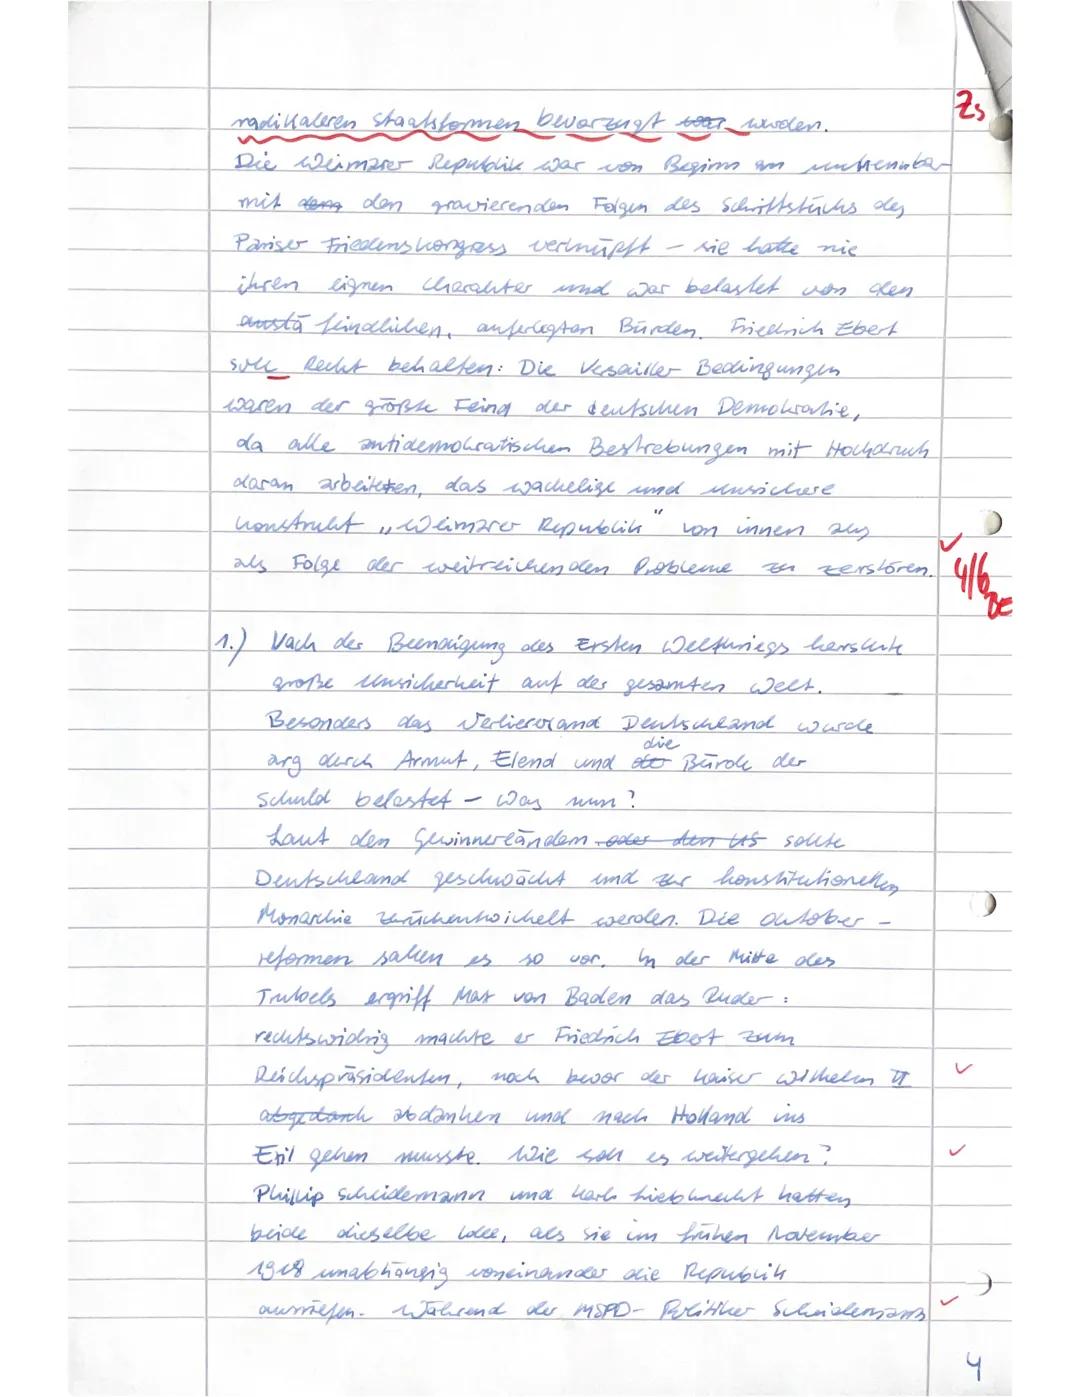 radikaleren Staatsformen bevorzugt wurden.
Zs
Die Weimarer Republik war von Beginn an untrennbar
mit den gravierenden Folgen des Schriftstücks des
Pariser Friedenskongress verknüpft – sie hatte nie
ihren eignen Charakter und war belastet von den
feindlichen, auferlegten Bürden. Friedrich Ebert
soll Recht behalten: Die Versailler Bedingungen
waren der größte Feind der deutschen Demokratie,
da alle antidemokratischen Bestrebungen mit Hochdruck
daran arbeiteten, das wackelige und unsichere
Konstrukt „Weimarer Republik" von innen aus
als Folge der weitreichenden Probleme zu zerstören.
4/6 BE
1.) Nach der Beendigung des Ersten Weltkriegs herrschte
große Unsicherheit auf der gesamten Welt.
Besonders das Verliererland Deutschland wurde
arg durch Armut, Elend und die Bürde der
Schuld belastet – Was nun?
Laut den Gewinnerländern oder den US sollte
Deutschland geschwächt und zur konstitutionellen
Monarchie zurückentwickelt werden. Die Oktober-
reformen sahen es so vor. In der Mitte des
Trubels ergriff Max von Baden das Ruder:
rechtswidrig machte er Friedrich Ebert zum
Reichspräsidenten, noch bevor der Kaiser Wilhelm II
abdanken und nach Holland ins
Exil gehen musste. Wie soll es weitergehen?
Phillip Scheidemann und Karl Liebknecht hatten
beide dieselbe Idee, als sie im frühen November
1918 unabhängig voneinander die Republik
ausriefen. Während der MSPD-Politiker Scheidemann
4